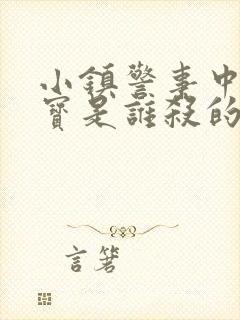 小鎮警事中
寶是誰殺的
言箸